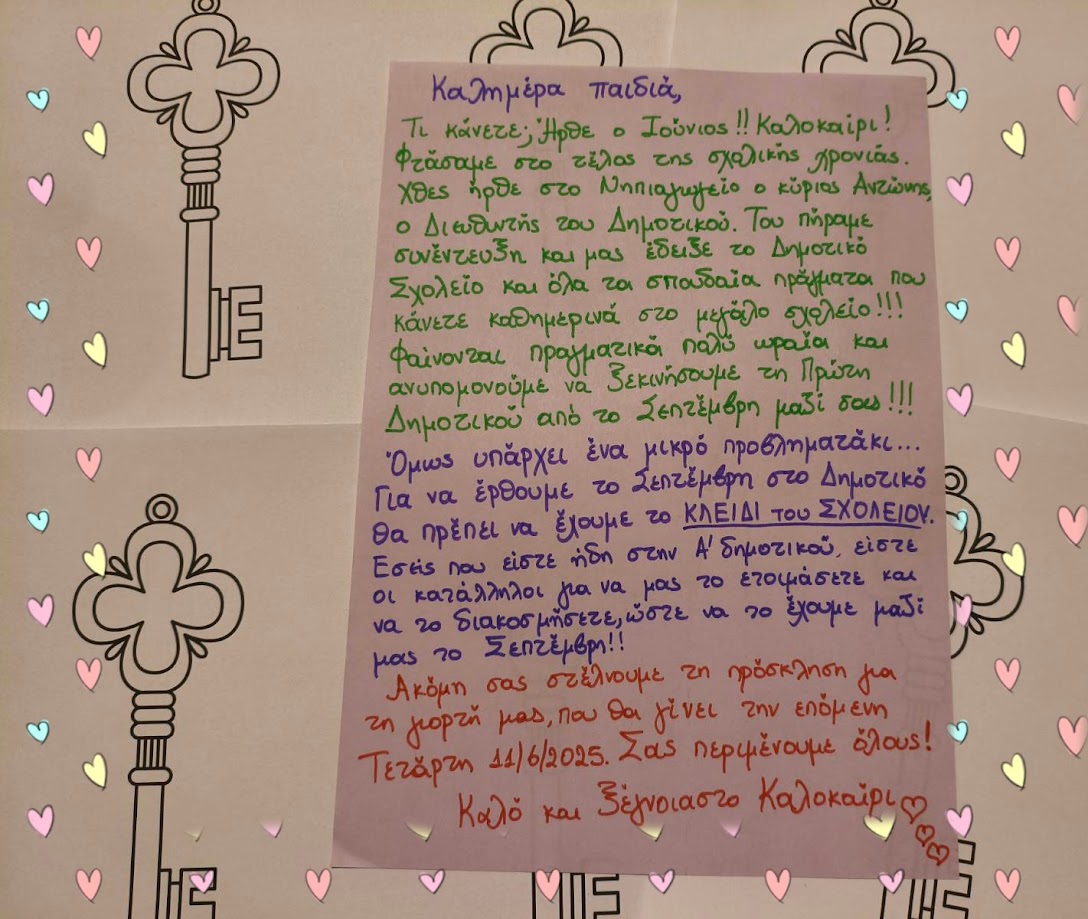 Καλημέρα παιδιά,
Τι κάνετε; Ήρθε ο Ιούνιος!! Καλοκαίρι!
Φτάσαμε στο τέλος της σχολικής χρονιάς.
Χθες ήρθε στο Νηπιαγωγείο ο κύριος Αντώνης,
ο Διευθυντής του Δημοτικού. Του πήραμε
συνέντευξη και μας έδειξε το Δημοτικό
Σχολείο και όλα τα σπουδαία πράγματα που
κάνετε καθημερινά στο μεγάλο σχολείο!!!
Φαίνονται πραγματικά πολύ ωραία και
ανυπομονούμε να ξεκινήσουμε τη Πρώτη
Δημοτικού από το Σεπτέμβρη μαζί σας!!!
Όμως υπάρχει ένα μικρό προβληματάκι...
Για να έρθουμε το Σεπτέμβρη στο Δημοτικό
θα πρέπει να έχουμε το ΚΛΕΙΔΙ του ΣΧΟΛΕΙΟΥ.
Εσείς που είστε ήδη στην Α' δημοτικού, είστε
οι κατάλληλοι για να μας το ετοιμάσετε και
να το διακοσμήσετε, ώστε να το έχουμε μαζί
μας το Σεπτέμβρη!!
Ακόμη σας στέλνουμε τη πρόσκληση για
τη γιορτή μας, που θα γίνει την επόμενη
Τετάρτη 11/6/2025. Σας περιμένουμε όλους!
Καλό και ξέγνοιαστο Καλοκαίρι